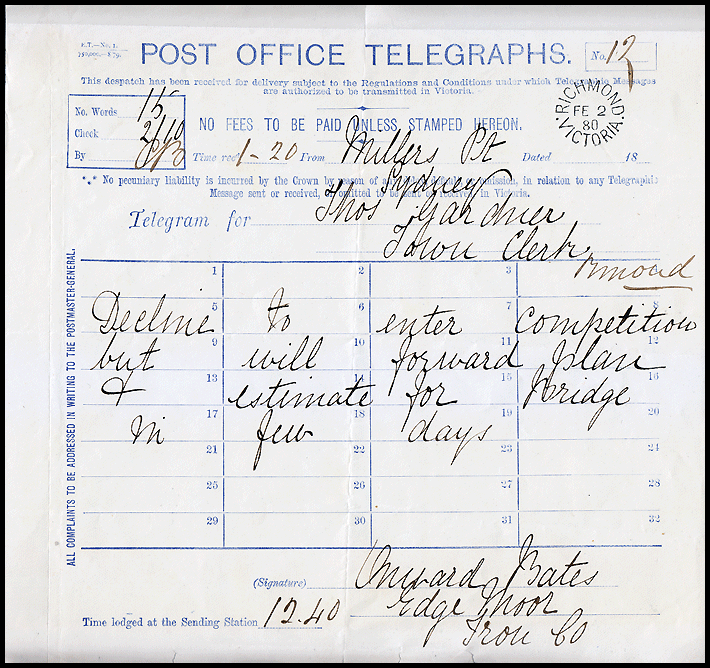 E.T.—No. 1.
POST OFFICE TELEGRAPHS.
No. 12
This despatch has been received for delivery subject to the Regulations and Conditions under which Telegraphic Messages
are authorized to be transmitted in Victoria.
No. Words 15
Check 2/10
By
NO FEES TO BE PAID UNLESS STAMPED HEREON.
RICHMOND
FE 2
80
VICTORIA
Time rec 1-20 From Millers Pt Dated 18
Sydney
*.* No pecuniary liability is incurred by the Crown by reason of any delay, default, or omission, in relation to any Telegraphic
Message sent or received, or omitted to be sent or received in Victoria.
Telegram for Thos Gardner
Town Clerk
Rmond
ALL COMPLAINTS TO BE ADDRESSED IN WRITING TO THE POSTMASTER-GENERAL.
1 2 3
5 6 7 8
Decline to enter Competition
9 10 11
but will forward plan
13 14 15 16
& estimate for bridge
17 18 19 20
in few days
21 22 23 24
25 26 27 28
29 30 31 32
(Signature) Onward Bates
Edge Moor
Iron Co
Time lodged at the Sending Station 12.40